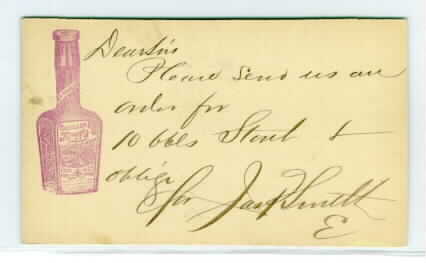 Dear Sirs
Please send us an
order for
10 bbls Stout &
oblige
for Jas P Smith
E